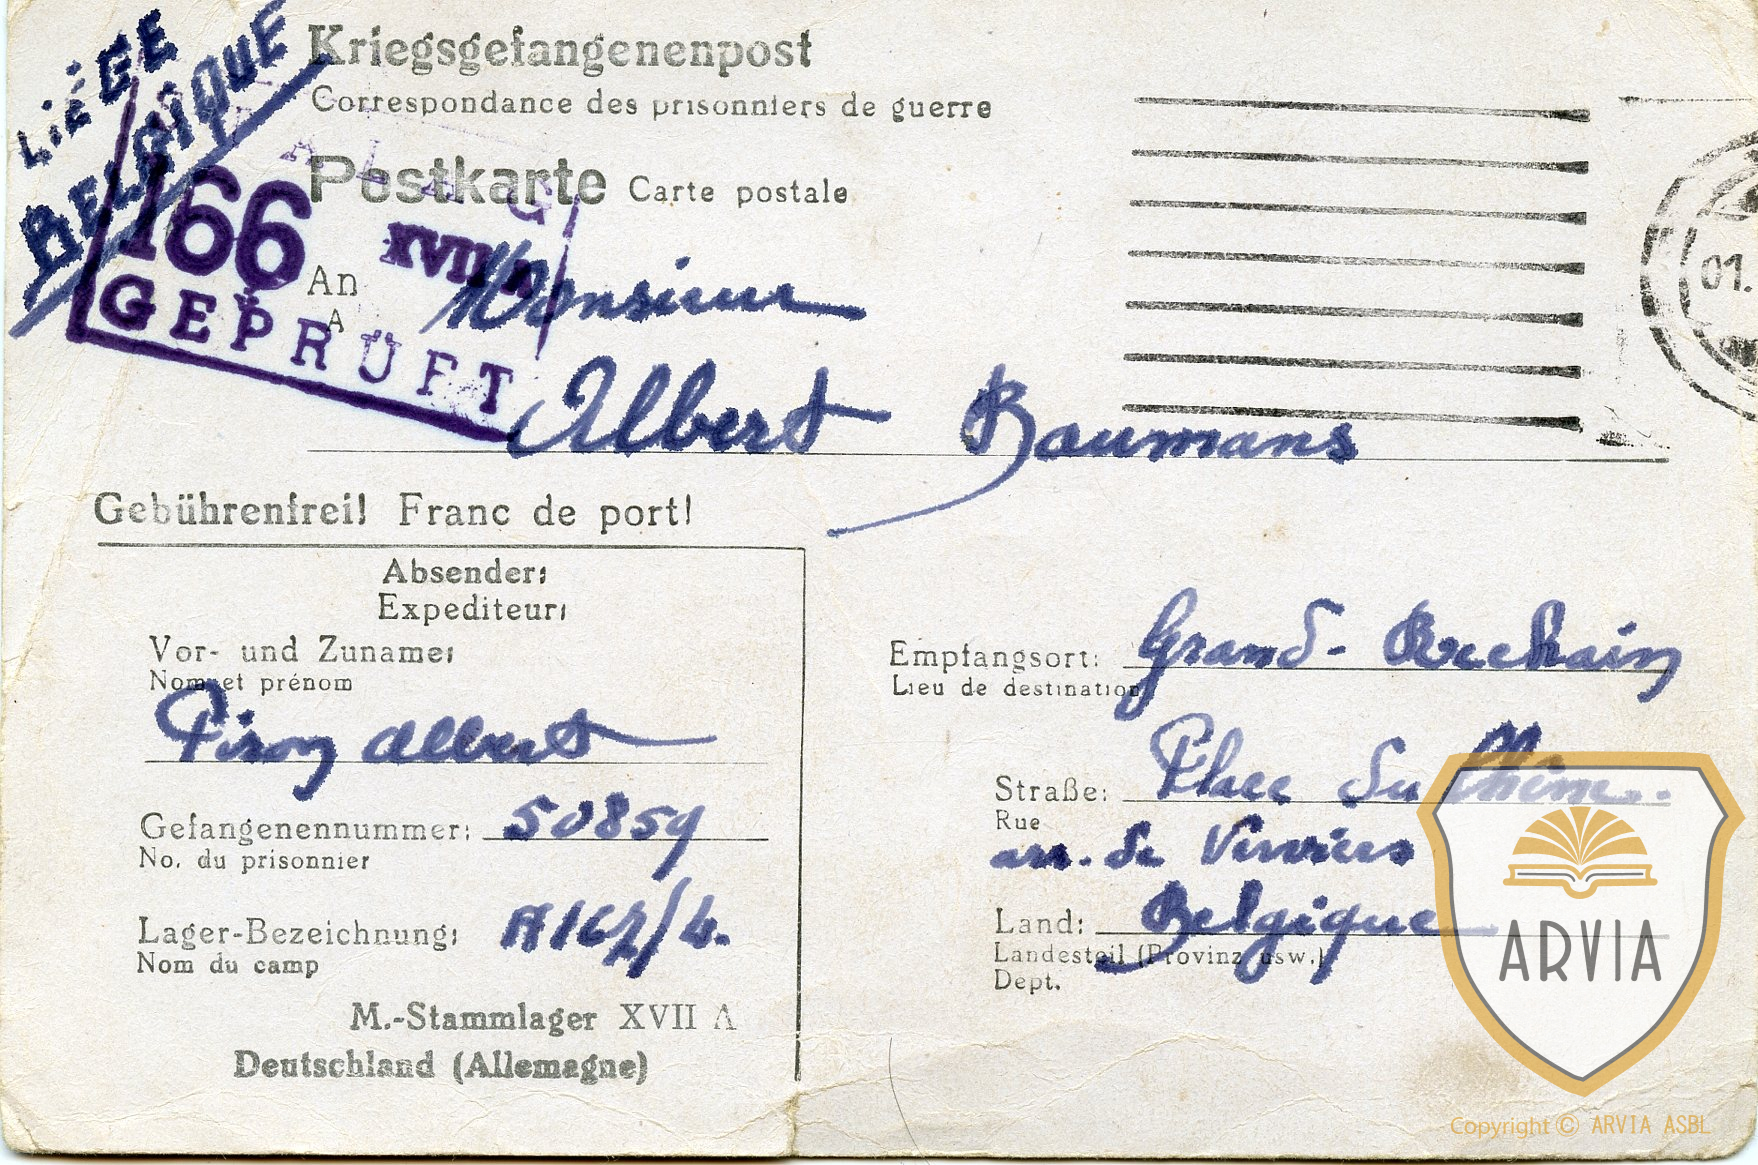 LiÉGE
BELGIQUE
Kriegsgefangenenpost
Correspondance des prisonniers de guerre
Postkarte Carte postale
STALAG
XVII A
166
GEPRÜFT
01.
An
A
Monsieur
Albert Baumans
Gebührenfrei! Franc de port!
Absender:
Expediteur:
Vor- und Zuname:
Nom et prénom
Piron Albert
Gefangenennummer: 50859
No. du prisonnier
Lager-Bezeichnung:
Nom du camp
M.-Stammlager XVII A
Deutschland (Allemagne)
Empfangsort: Grand-Rechain
Lieu de destination
Straße: Place du
Rue
arr. de Verviers
Land: Belgique
Landesteil (Provinz usw.)
Dept.
ARVIA
Copyright © ARVIA ASBL